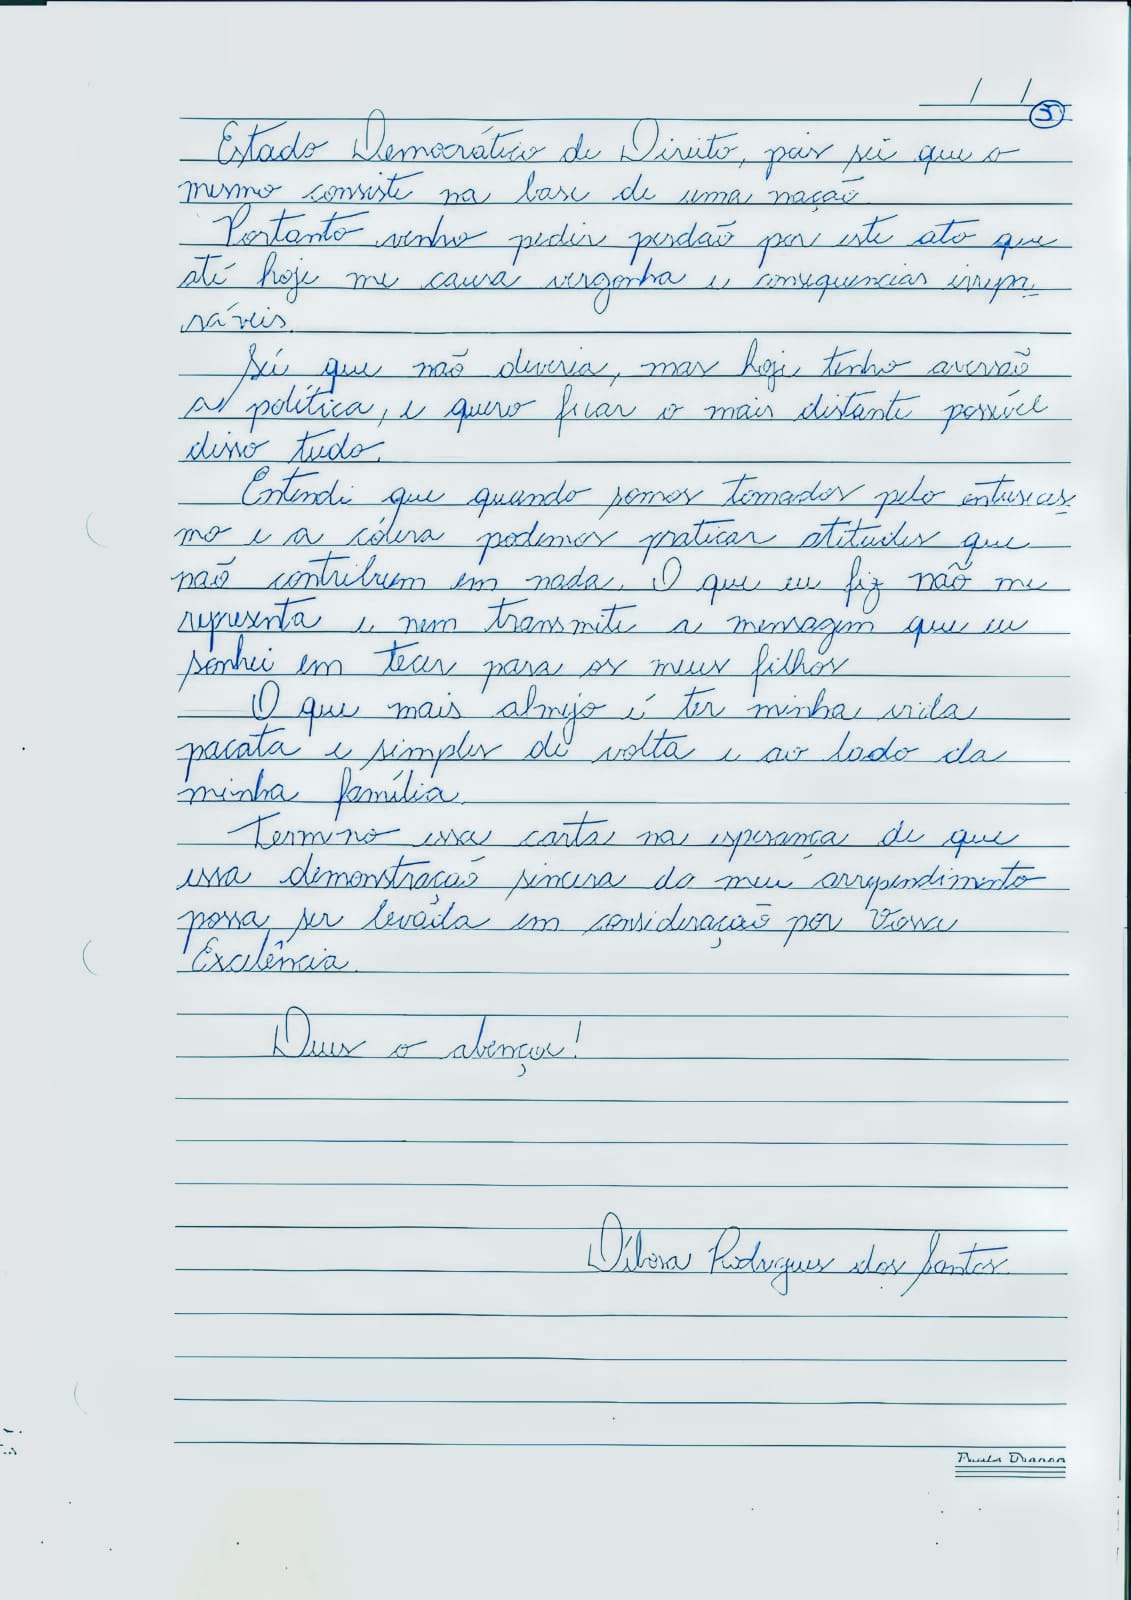 / /
5
Estado Democrático de Direito, pois sei que o
mesmo consiste na base de uma nação.
Portanto venho pedir perdão por este ato que
até hoje me causa vergonha e consequencias irrepa-
ráveis.
Sei que não deveria, mas hoje tenho aversão
a política, e quero ficar o mais distante possível
disso tudo.
Entendi que quando somos tomados pelo entusias-
mo e a cólera podemos praticar atitudes que
não contribuem em nada. O que eu fiz não me
representa e nem transmite a mensagem que eu
sonhei em tecer para os meus filhos
O que mais almejo é ter minha vida
pacata e simples de volta e ao lado da
minha família.
Termino essa carta na esperança de que
essa demonstração sincera do meu arrependimento
possa ser levada em consideração por Vossa
Excelência.
Deus o abençoe!
Débora Rodrigues dos Santos